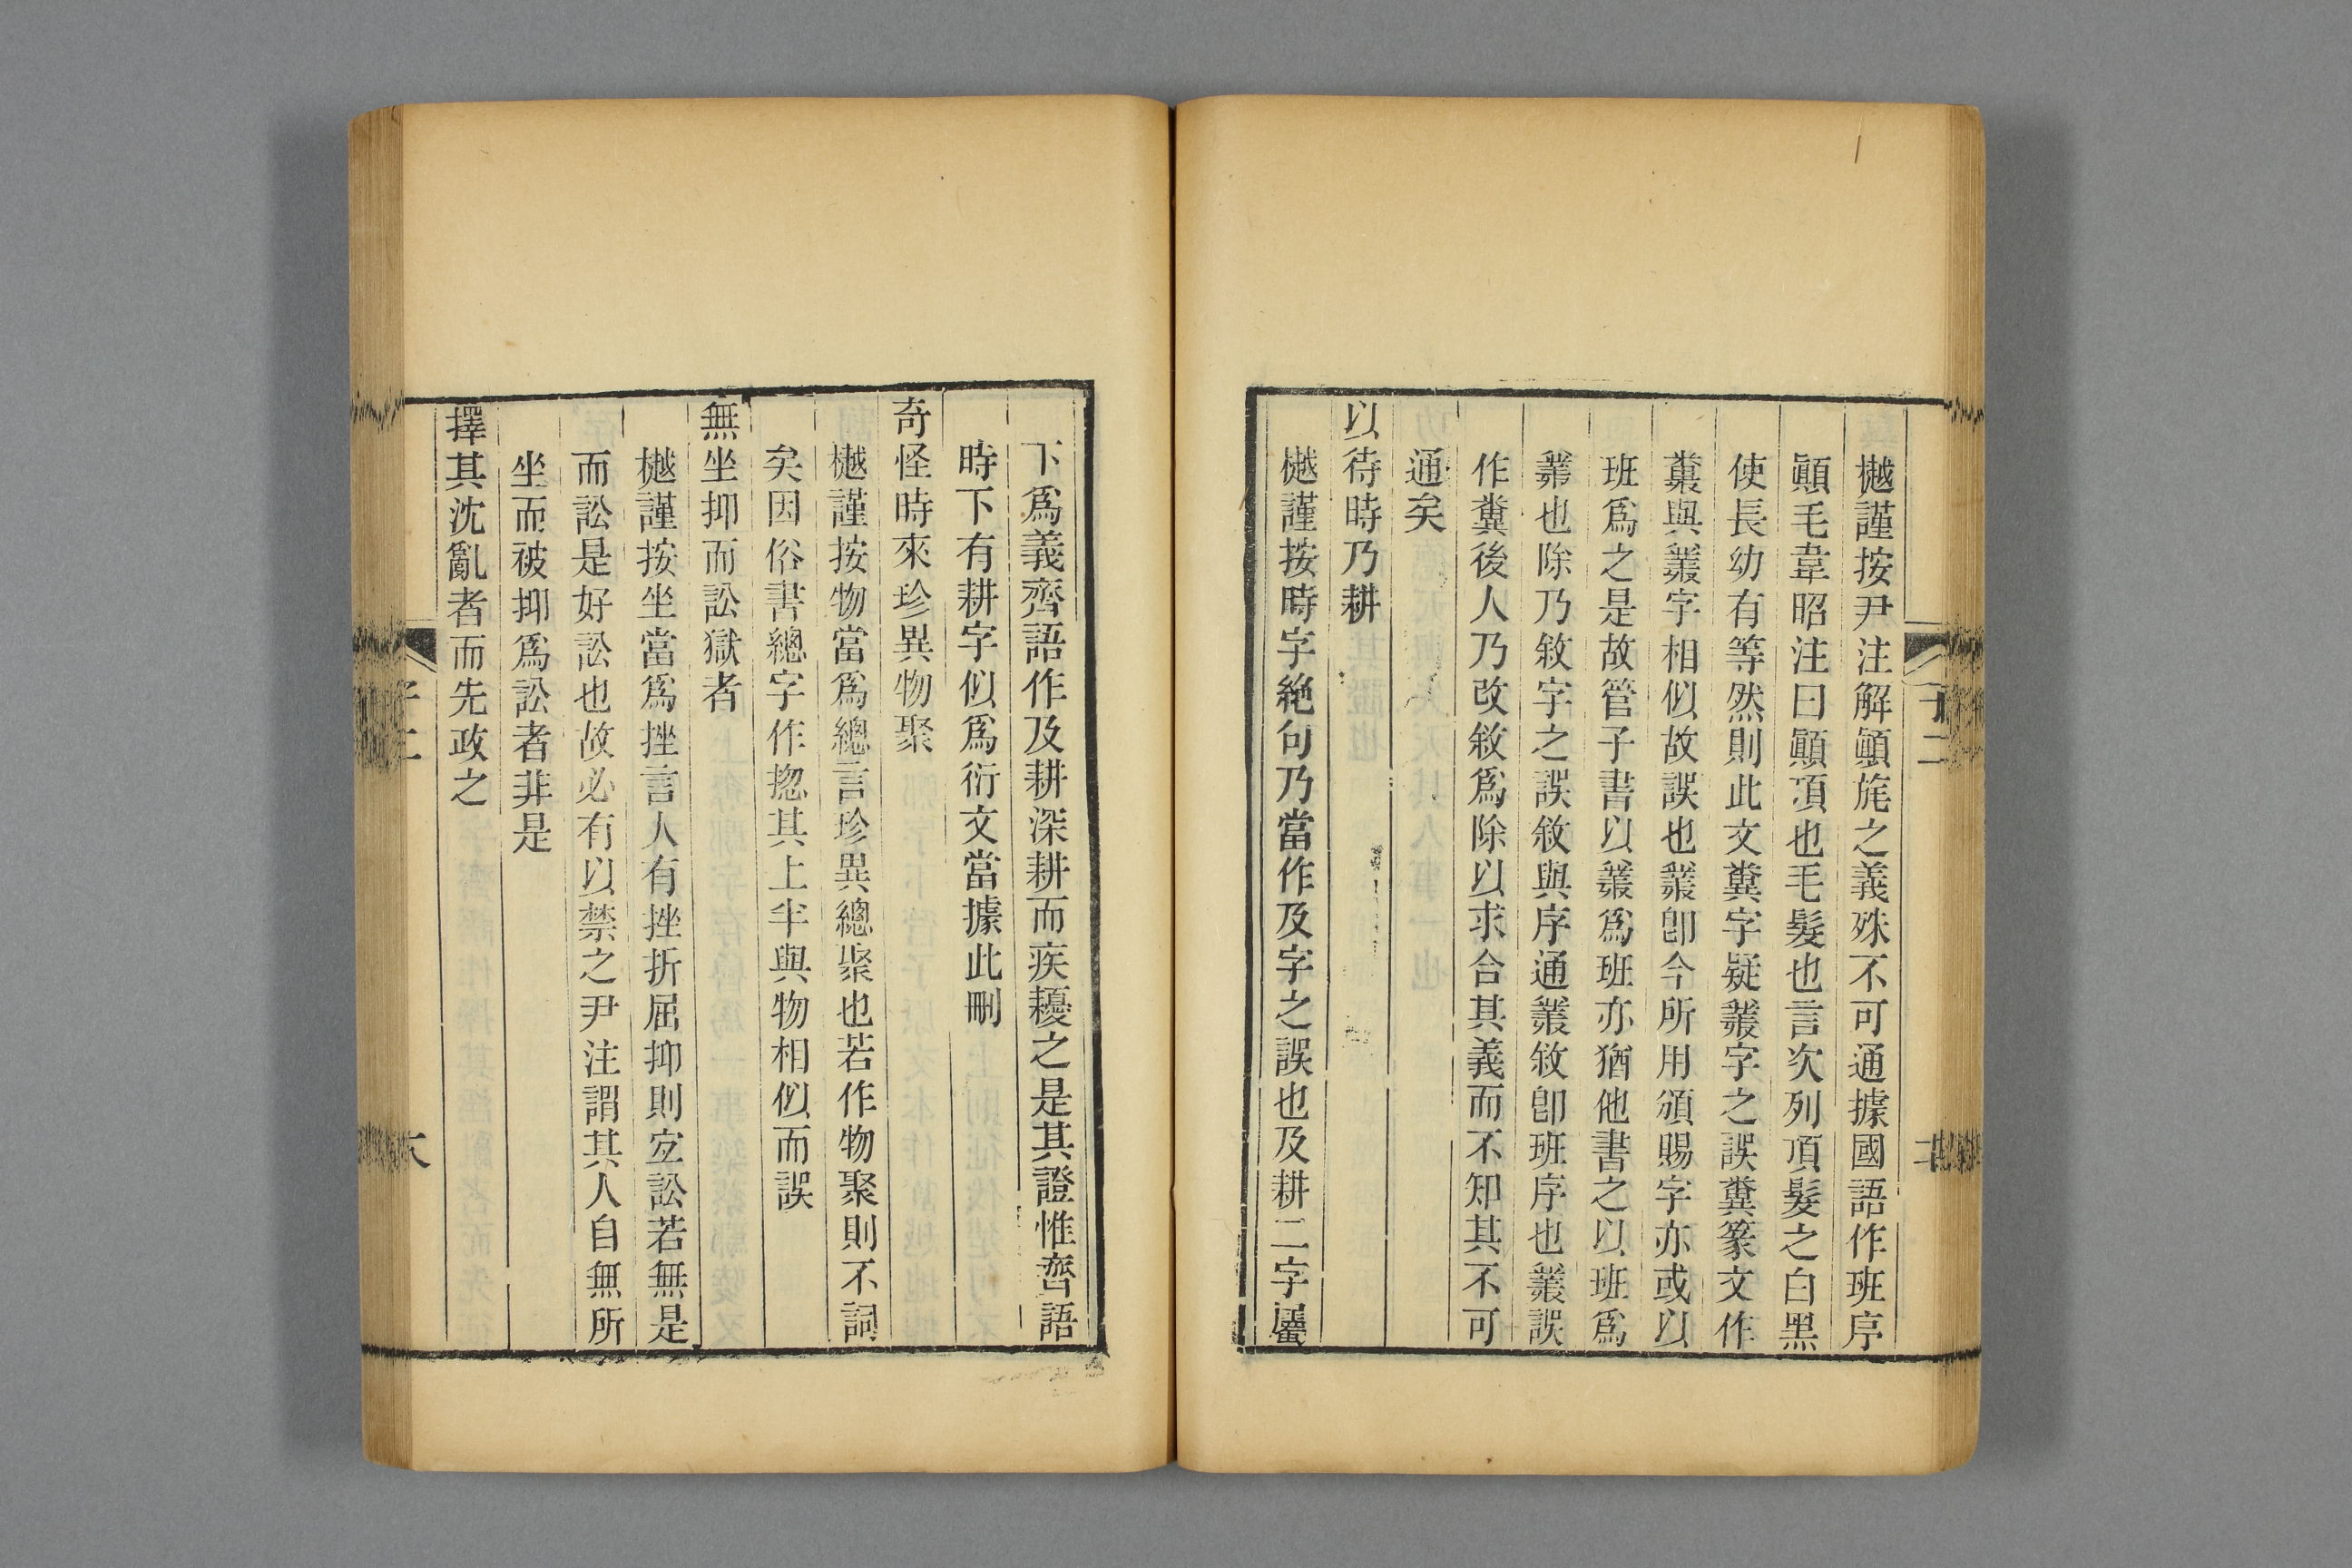 樾謹按尹注解顚旄之義殊不可通據國語作班序
顚毛韋昭注曰顚頂也毛髮也言次列頂髮之白黑
使長幼有等然則此文糞字疑䉵字之誤糞篆文作
與䉵字相似故誤也䉵卽今所用頒賜字亦或以
班爲之是故管子書以䉵爲班亦猶他書之以班爲
䉵也除乃敘字之誤敘與序通䉵敘卽班序也䉵誤
作糞後人乃改敘爲除以求合其義而不知其不可
通矣
以待時乃耕
樾謹按時字絶句乃當作及字之誤也及耕二字屬
子二
下爲義齊語作及耕深耕而疾耰之是其證惟齊語
時下有耕字似爲衍文當據此刪
奇怪時來珍異物聚
樾謹按物當爲總言珍異總聚也若作物聚則不詞
矣因俗書總字作揔其上半與物相似而誤
無坐抑而訟獄者
樾謹按坐當爲挫言人有挫折屈抑則宐訟若無是
而訟是好訟也故必有以禁之尹注謂其人自無所
坐而被抑爲訟者非是
擇其沈亂者而先政之